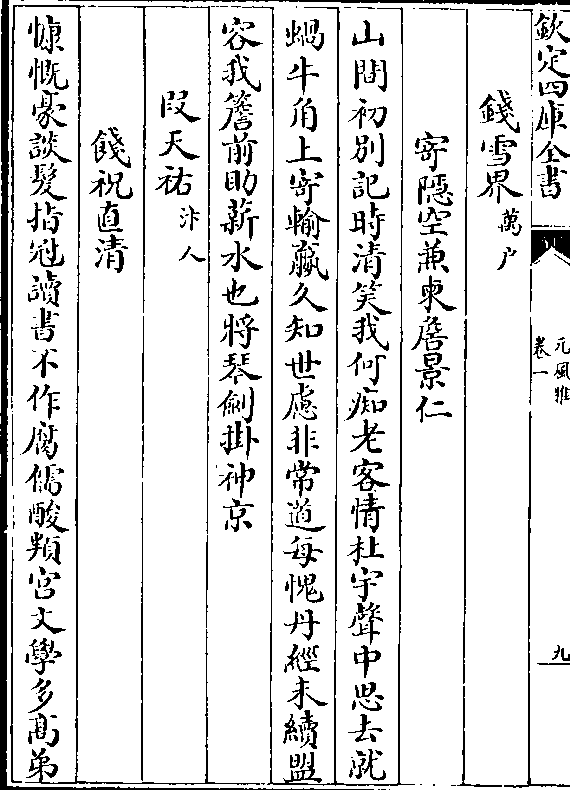 欽定四庫全書
元風雅
卷一
九
錢雪界萬户
寄隱空兼柬詹景仁
山間初別記時清笑我何痴老客情杜宇聲中思去就
蝸牛角上寄輸贏久知世慮非常道每愧丹經未續盟
容我簷前助薪水也將琴劍掛神京
段天祐汴人
餞祝直清
慷慨豪談髮指冠讀書不作腐儒酸頖宮文學多髙弟